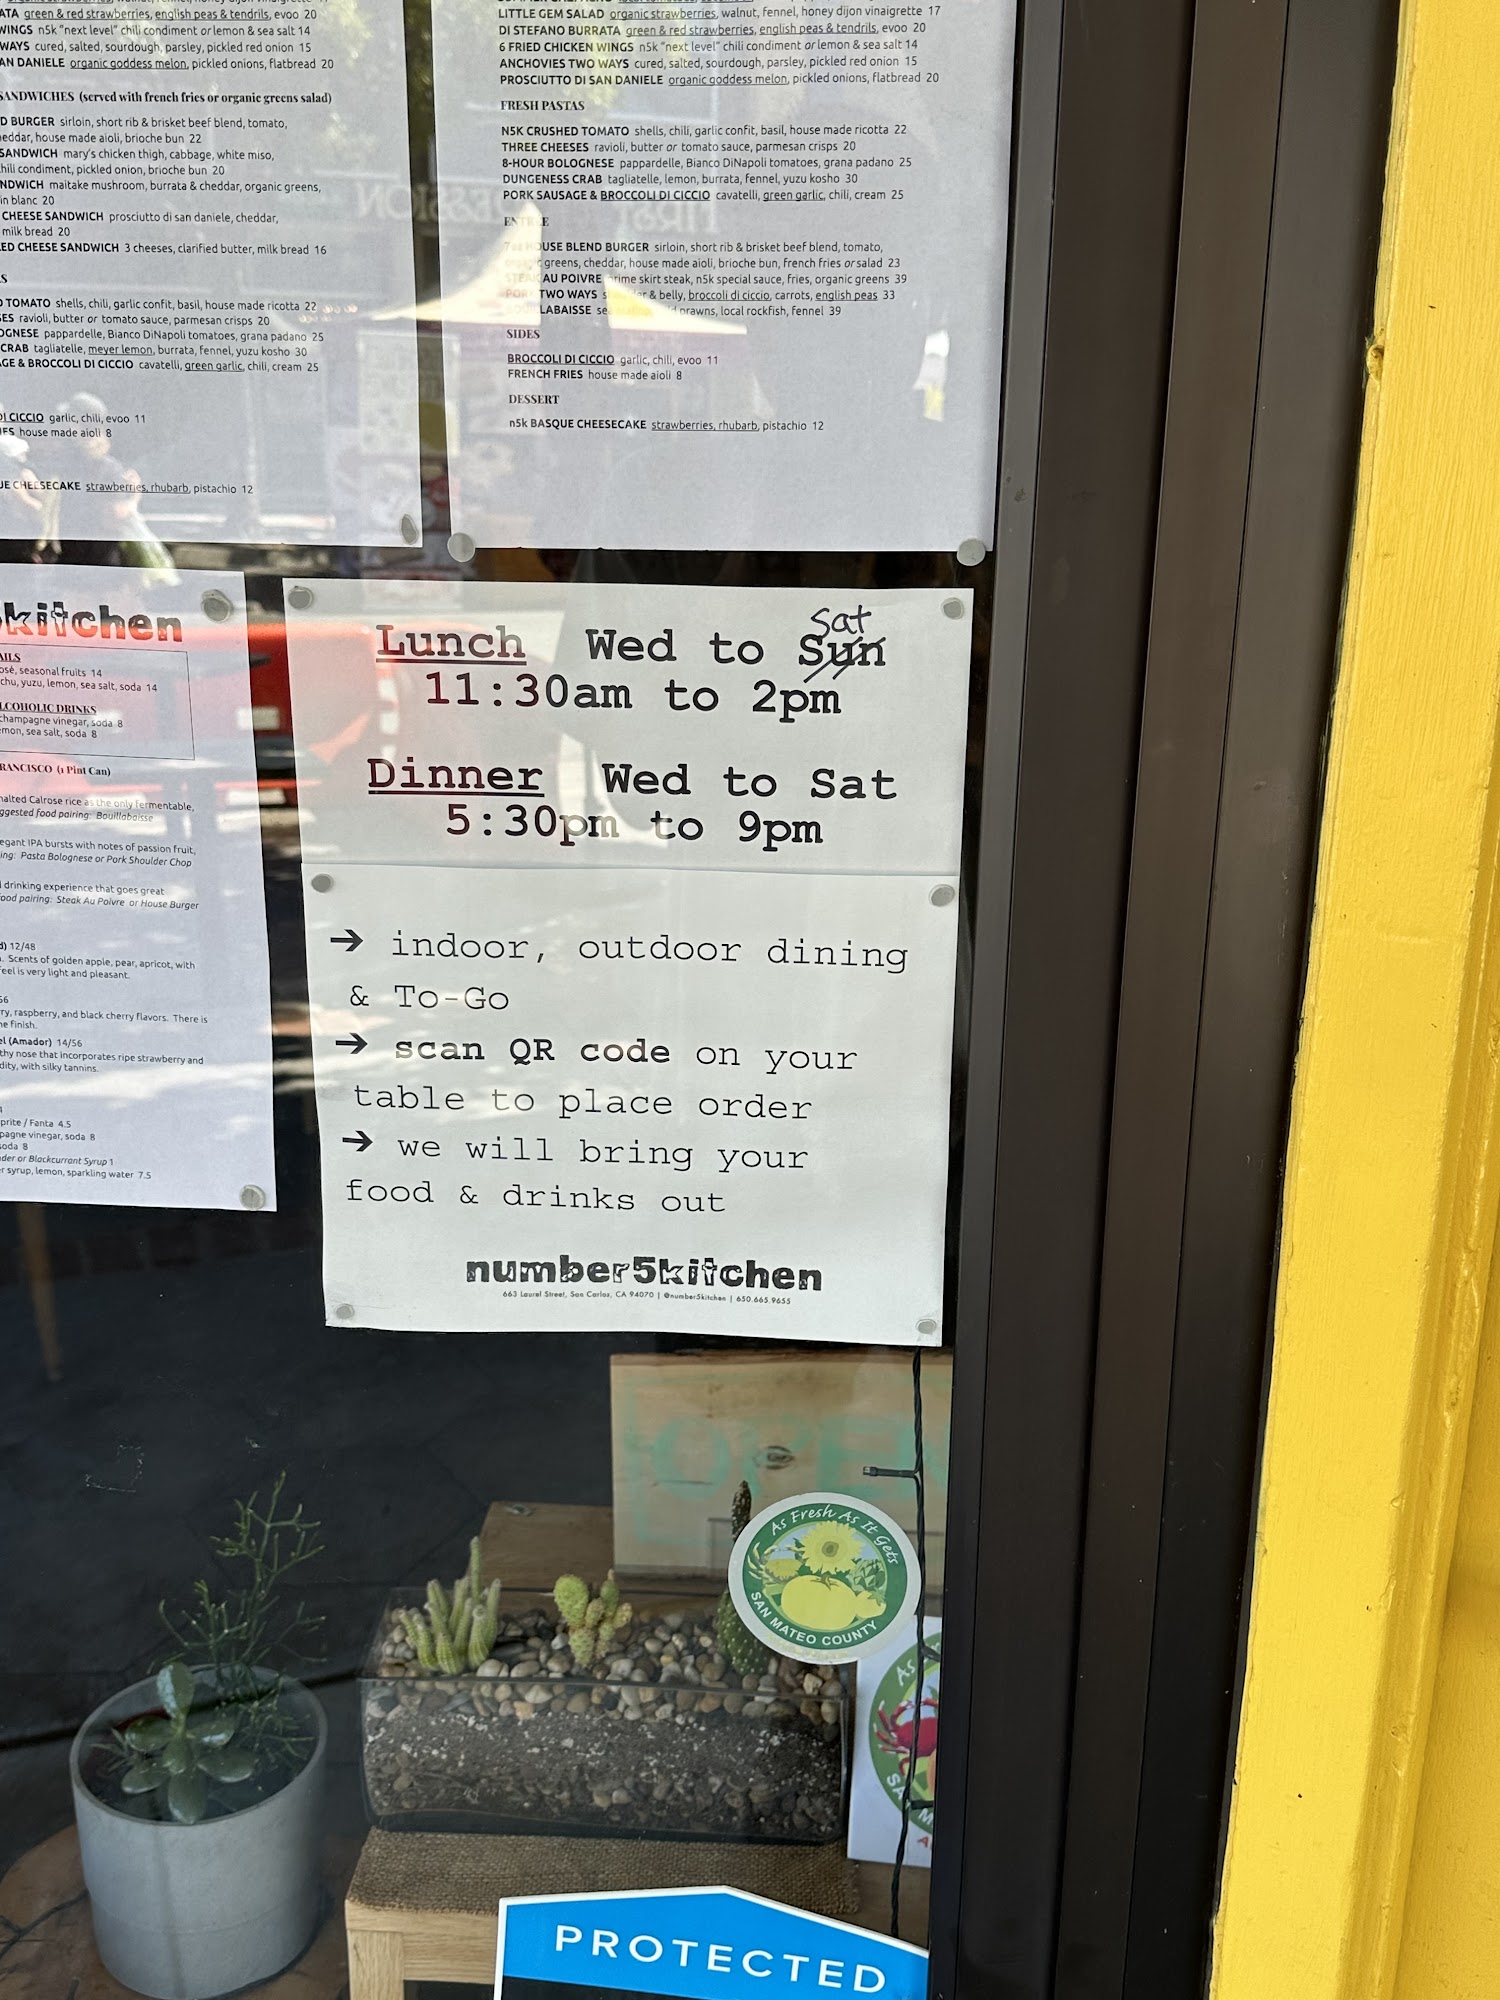 ATA green & red strawberries, english peas & tendrils, evoo 20
WINGS n5k "next level" chili condiment or lemon & sea salt 14
WAYS cured, salted, sourdough, parsley, pickled red onion 15
AN DANIELE organic goddess melon, pickled onions, flatbread 20
SANDWICHES (served with french fries or organic greens salad)
D BURGER sirloin, short rib & brisket beef blend, tomato,
eddar, house made aioli, brioche bun 22
SANDWICH mary's chicken thigh, cabbage, white miso,
hili condiment, pickled onion, brioche bun 20
NDWICH maitake mushroom, burrata & cheddar, organic greens,
in blanc 20
CHEESE SANDWICH prosciutto di san daniele, cheddar,
milk bread 20
ED CHEESE SANDWICH 3 cheeses, clarified butter, milk bread 16
S
O TOMATO shells, chili, garlic confit, basil, house made ricotta 22
SES ravioli, butter or tomato sauce, parmesan crisps 20
OGNESE pappardelle, Bianco DiNapoli tomatoes, grana padano 25
CRAB tagliatelle, meyer lemon, burrata, fennel, yuzu kosho 30
GE & BROCCOLI DI CICCIO cavatelli, green garlic, chili, cream 25
DI CICCIO garlic, chili, evoo 11
IES house made aioli 8
UE CHEESECAKE strawberries, rhubarb, pistachio 12
LITTLE GEM SALAD organic strawberries, walnut, fennel, honey dijon vinaigrette 17
DI STEFANO BURRATA green & red strawberries, english peas & tendrils, evoo 20
6 FRIED CHICKEN WINGS n5k "next level" chili condiment or lemon & sea salt 14
ANCHOVIES TWO WAYS cured, salted, sourdough, parsley, pickled red onion 15
PROSCIUTTO DI SAN DANIELE organic goddess melon, pickled onions, flatbread 20
FRESH PASTAS
N5K CRUSHED TOMATO shells, chili, garlic confit, basil, house made ricotta 22
THREE CHEESES ravioli, butter or tomato sauce, parmesan crisps 20
8-HOUR BOLOGNESE pappardelle, Bianco DiNapoli tomatoes, grana padano 25
DUNGENESS CRAB tagliatelle, lemon, burrata, fennel, yuzu kosho 30
PORK SAUSAGE & BROCCOLI DI CICCIO cavatelli, green garlic, chili, cream 25
ENTRÉE
HOUSE BLEND BURGER sirloin, short rib & brisket beef blend, tomato,
greens, cheddar, house made aioli, brioche bun, french fries or salad 23
STEAK AU POIVRE prime skirt steak, n5k special sauce, fries, organic greens 39
PORK TWO WAYS shoulder & belly, broccoli di ciccio, carrots, english peas 33
LABAISSE prawns, local rockfish, fennel 39
SIDES
BROCCOLI DI CICCIO garlic, chili, evoo 11
FRENCH FRIES house made aioli 8
DESSERT
n5k BASQUE CHEESECAKE strawberries, rhubarb, pistachio 12
kitchen
AILS
osé, seasonal fruits 14
chu, yuzu, lemon, sea salt, soda 14
LCOHOLIC DRINKS
champagne vinegar, soda 8
emon, sea salt, soda 8
RANCISCO (1 Pint Can)
malted Calrose rice as the only fermentable,
ggested food pairing: Bouillabaisse
egant IPA bursts with notes of passion fruit,
ing: Pasta Bolognese or Pork Shoulder Chop
drinking experience that goes great
ood pairing: Steak Au Poivre or House Burger
d) 12/48
. Scents of golden apple, pear, apricot, with
feel is very light and pleasant.
56
rry, raspberry, and black cherry flavors. There is
e finish.
el (Amador) 14/56
thy nose that incorporates ripe strawberry and
dity, with silky tannins.
prite / Fanta 4.5
pagne vinegar, soda 8
soda 8
der or Blackcurrant Syrup 1
r syrup, lemon, sparkling water 7.5
Sat
Lunch Wed to Sun
11:30am to 2pm
Dinner Wed to Sat
5:30pm to 9pm
➔ indoor, outdoor dining
& To-Go
➔ scan QR code on your
table to place order
➔ we will bring your
food & drinks out
number5kitchen
663 Laurel Street, San Carlos, CA 94070 | @number5kitchen | 650.665.9655
OPEN
As Fresh As It Gets
SAN MATEO COUNTY
As
PROTECTED